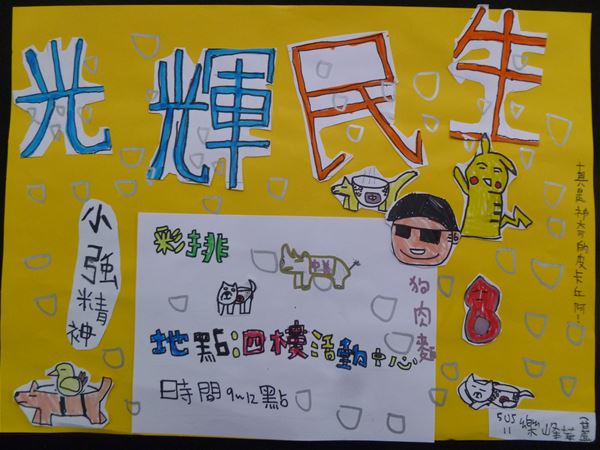 光輝民生
真是神奇的皮卡丘阿!
小強精神
彩排
狗肉麵
地點:四樓活動中心
時間9~12點
505
11